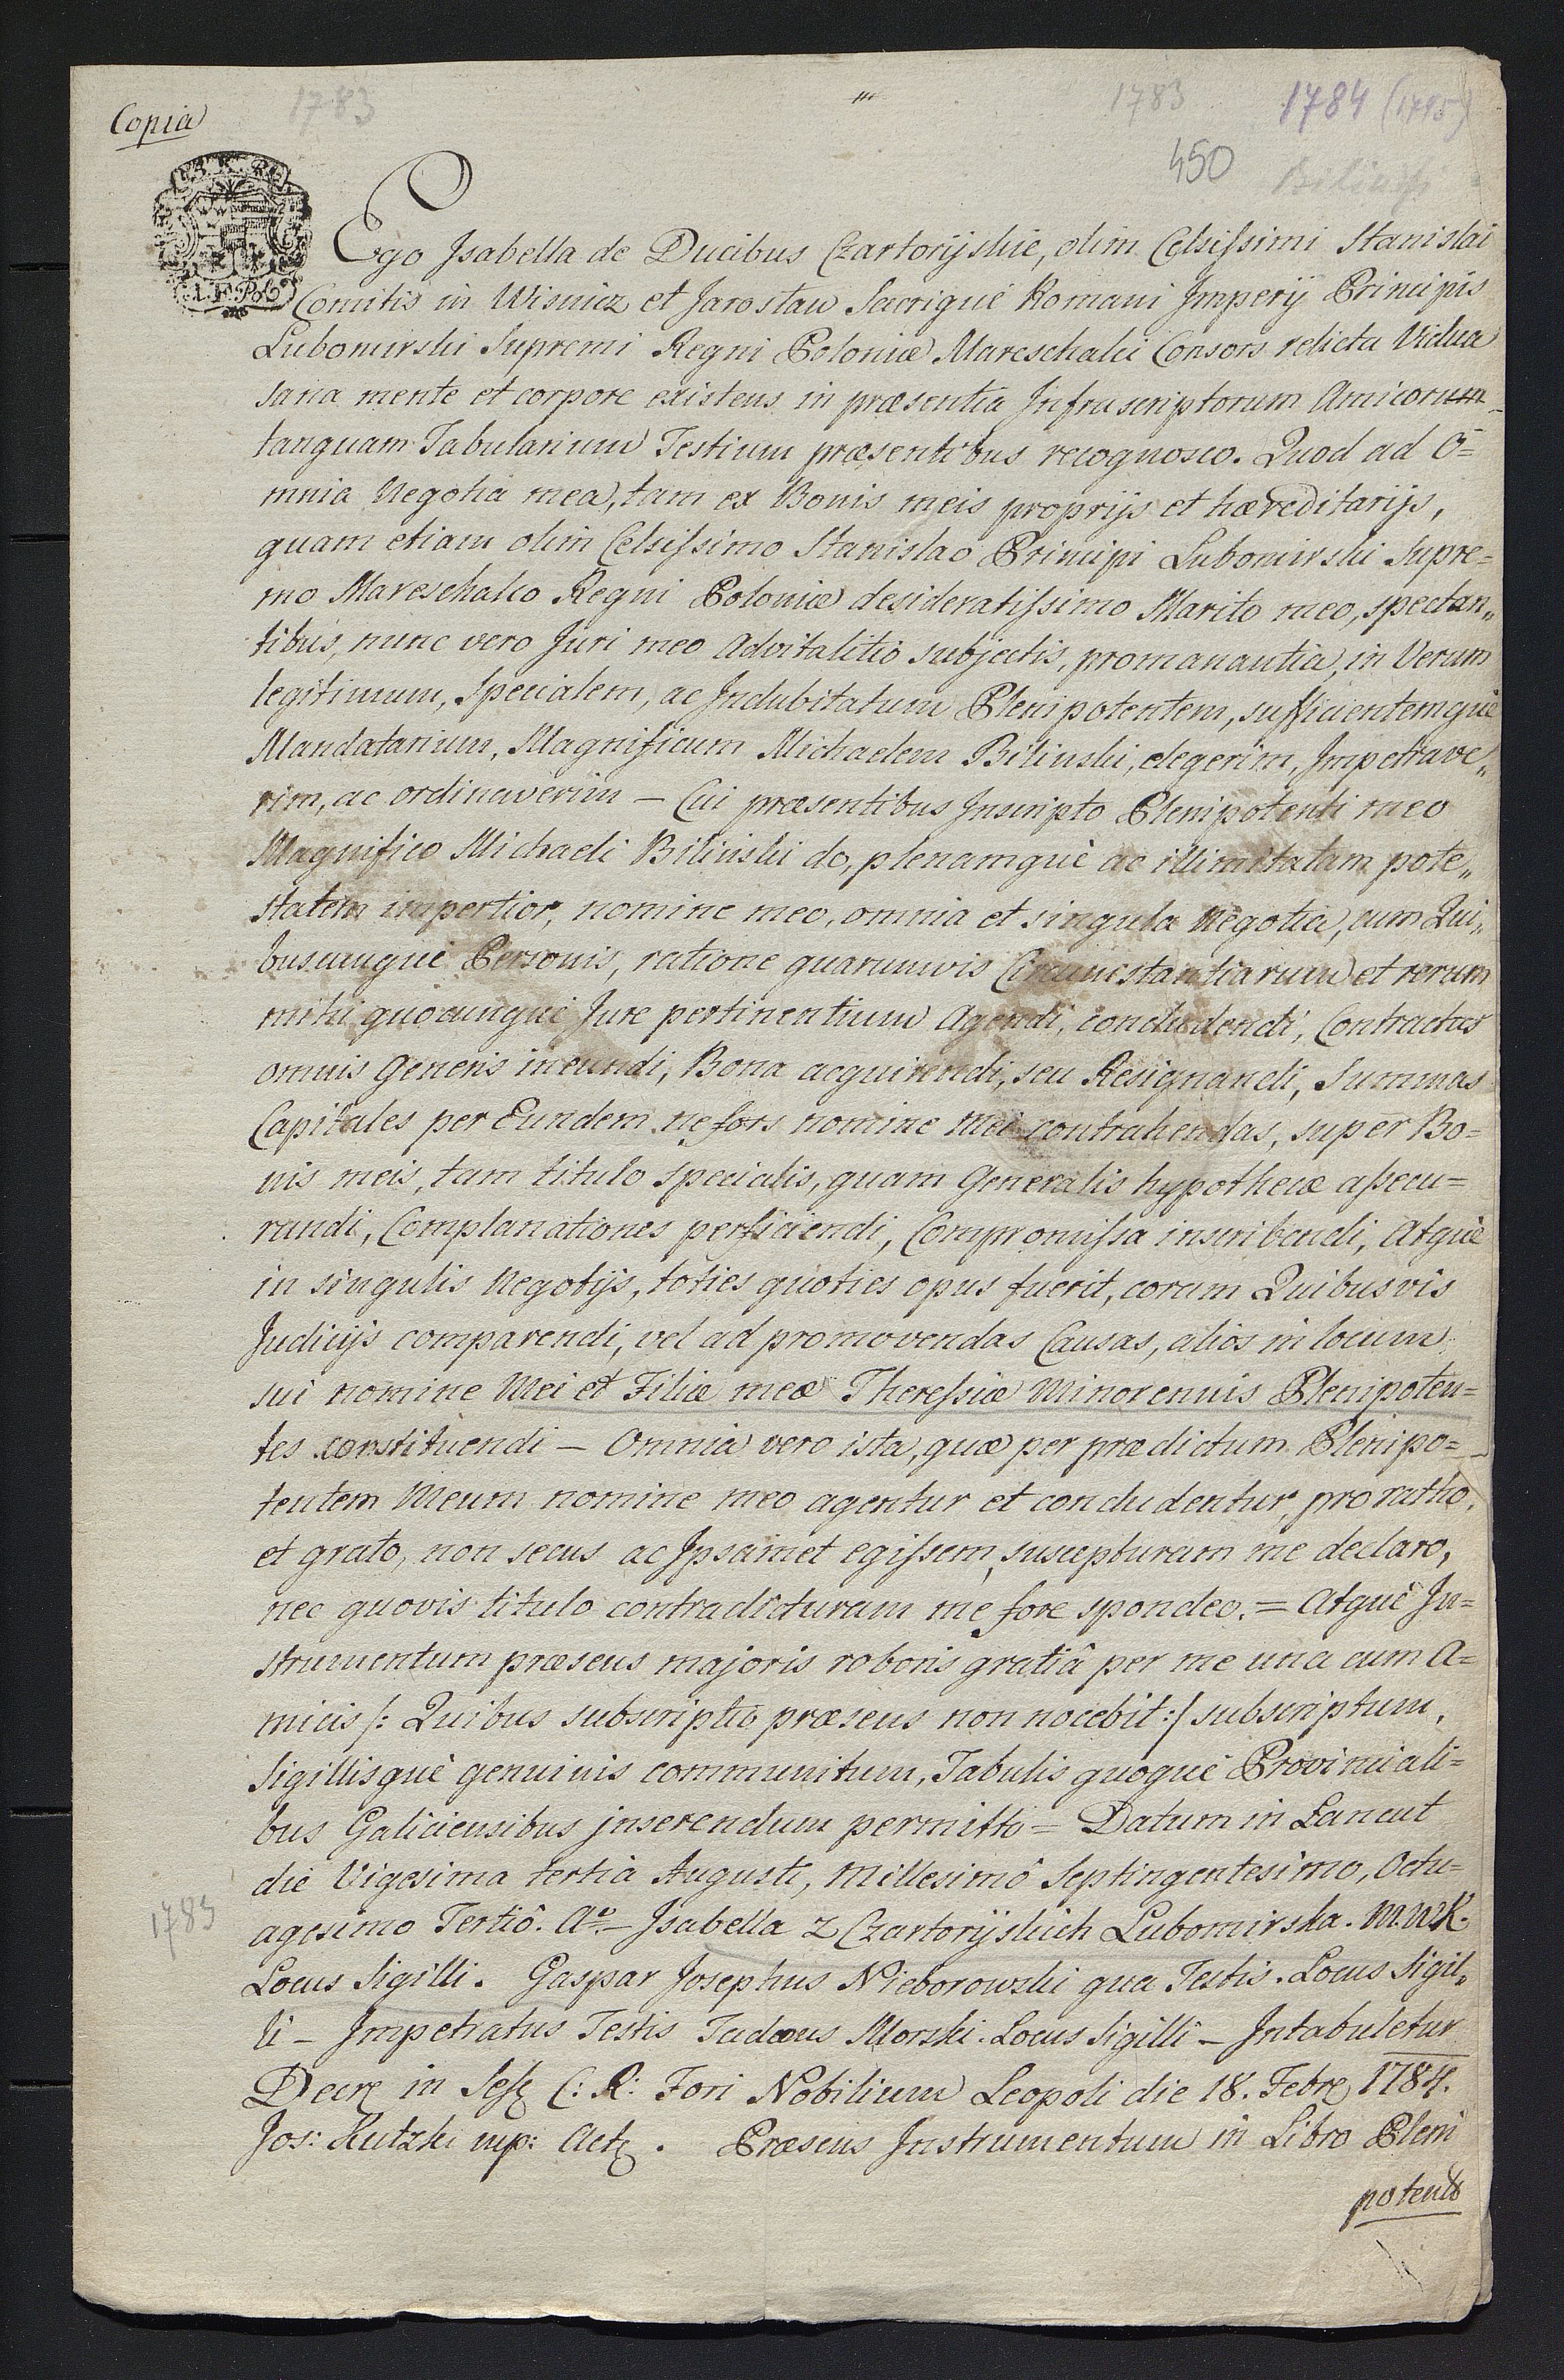 Copia
1783
1783
1784 (1795)
450
Bilinski
Ego Isabella de Ducibus Czartoryskie, olim Celsissimi Stanislai
Comitis in Wisnicz et Jaroslau Sacrique Romani Imperij Principis
Lubomirski Supremi Regni Poloniæ Mareschalci Consors relicta Vidua
sana mente et corpore existens in præsentia Infrascriptorum Amicorum
tanquam Tabularium Testium præsentibus recognosco. Quod ad O=
mnia Negotia mea, tam ex Bonis meis proprijs et hæreditarijs,
quam etiam olim Celsissimo Stanislao Principi Lubomirski Supre=
mo Mareschalco Regni Poloniæ desideratissimo Marito meo, spectan„
tibus, nunc vero Juri meo Advitalitio subjectis, promanantia, in Verum
legitimum, Specialem, ac Indubitatum Plenipotentem, sufficientemquè
Mandatarium, Magnificum Michaelem Bilinski, elegerim, Impetrave„
rim, ac ordinaverim – Cui præsentibus Inscripto Plenipotenti meo
Magnifico Michaeli Bilinski do, plenamquè ac illimitatam pote„
statem impertior, nomine meo, omnia et singula Negotia, cum Qui„
buscunquè Personis, ratione quarumvis Circumstantiarum et rerum
mihi quocunquè Jure pertinentium Agendi, concludendi, Contractus
omnis Generis ineundi, Bona acquirendi, seu Resignandi, Summas
Capitales per Eundem ne fors nomine Mei contrahendas, super Bo=
nis meis, tam titulo specialis, quam Generalis hypothecæ assecu=
randi, Complanationes perficiendi, Compromissa inscribendi, Atquè
in singulis Negotijs, toties quoties opus fuerit, coram Quibusvis
Judicijs comparendi, vel ad promovendas Causas, alios in locum
sui nomine Mei et Filiæ meæ Theressiæ Minorennis Plenipoten=
tes constituendi – Omnia vero ista, quæ per prædictum Plenipo=
tentem Meum nomine meo agentur et concludentur, pro ratho,
et grato, non secus ac Ipsamet egissem, suscepturam me declaro,
nec quovis titulo contradicturam me fore spondeo. = Atquè In=
strumentum præsens majoris roboris gratiâ per me una cum A=
micis /: Quibus subscriptio præsens non nocebit :/ subscriptum,
Sigillisquè genuinis communitum, Tabulis quoquè Provinciali=
bus Galiciensibus inserendum permitto = Datum in Lancut
die Vigesima tertia Augusti, Millesimô Septingentesimo, Octu=
1783
agesimo Tertiô. Aº – Isabella z Czartoryskich Lubomirska. M.W.K.
Locus Sigilli. Gaspar Josephus Nieborowski qua Testis. Locus Sigil„
li – Impetratus Testis Tadæus Morski. Locus Sigilli – Intabuletur
Decre in Sess C: R: Fori Nobilium Leopoli die 18. Febre 1784.
Jos: Kutzki mp: Act . Præsens Instrumentum in Libro Pleni
potent